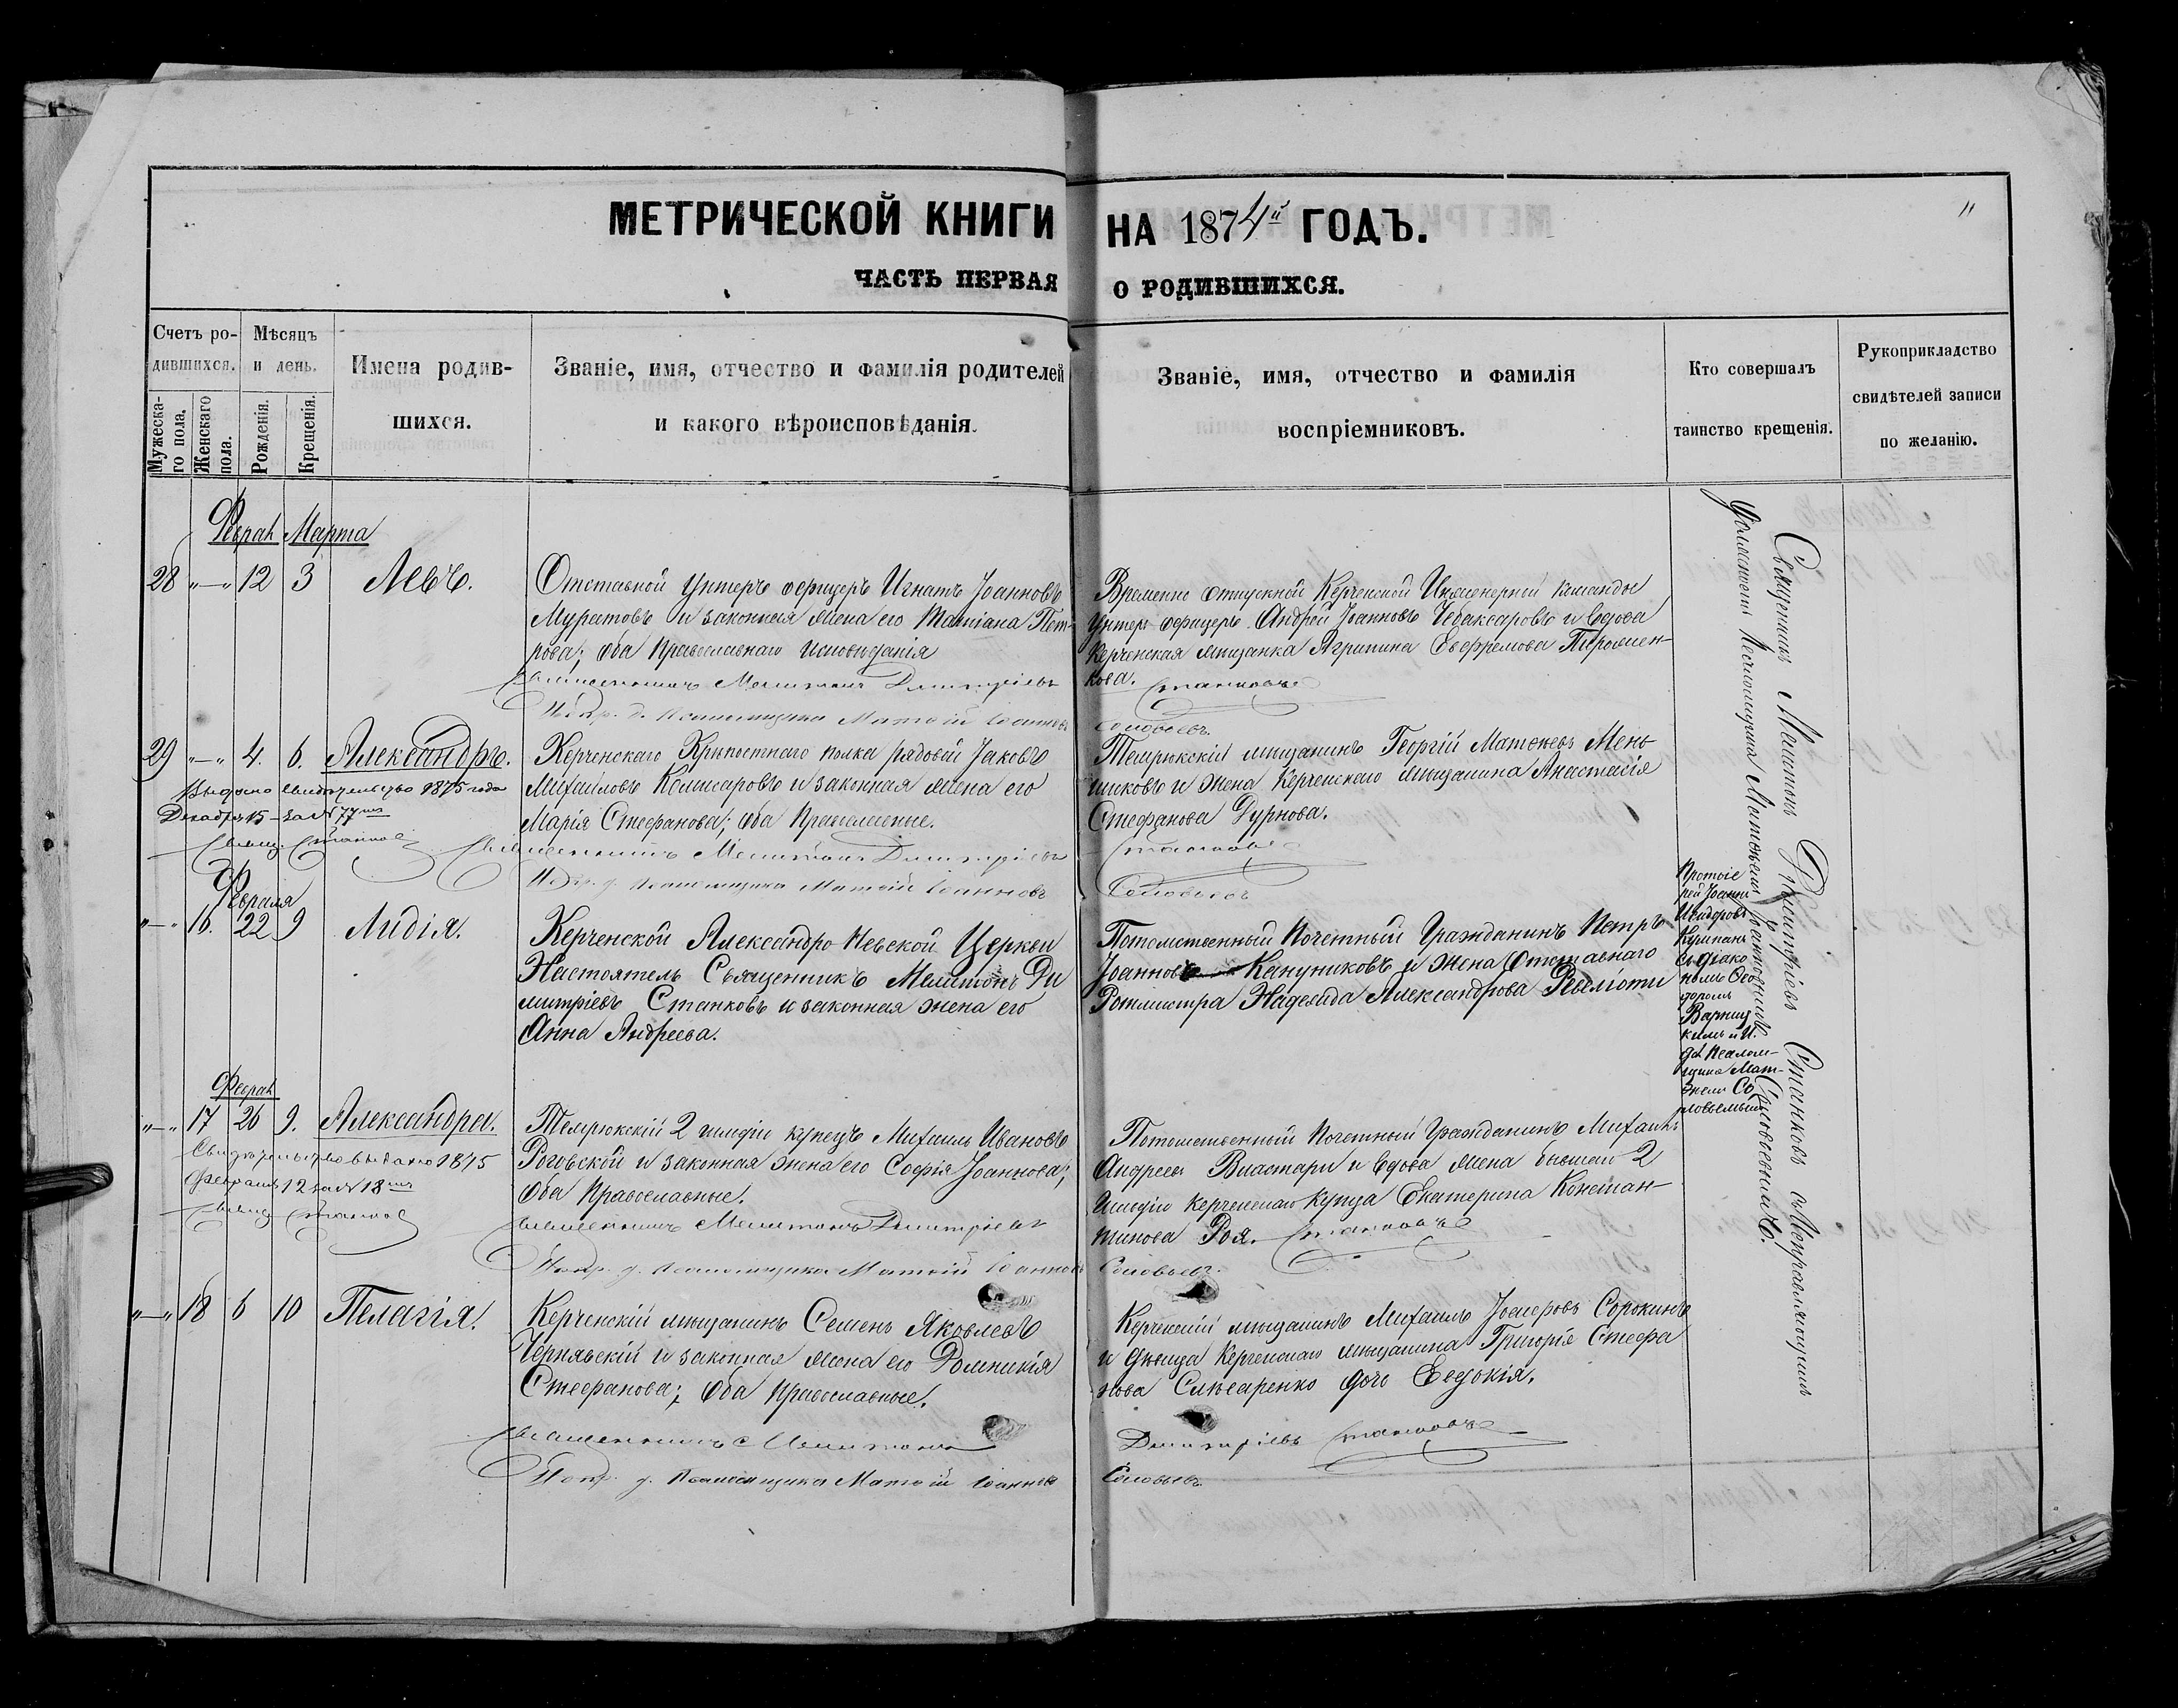 МЕТРИЧЕСКОЙ КНИГИ НА 1874й ГОДЪ.
ЧАСТЬ ПЕРВАЯ О РОДИВШИХСЯ.
11
Счетъ ро-
дившихся.
Мужеска-
го пола.
Женскаго
пола.
Мѣсяцъ
и день.
Рожденія.
Крещенія.
Имена родив-
шихся.
Званіе, имя, отчество и фамилія родителей
и какого вѣроисповѣданія.
Званіе, имя, отчество и фамилія
воспріемниковъ.
Кто совершалъ
таинство крещенія.
Рукоприкладство
свидѣтелей записи
по желанію.
Феврал Марта
28 "—" 12 3 Левъ.
Отставной Унтеръ офицеръ Игнатъ Іоанновъ
Муратовъ и законная жена его Татіана Пет-
рова; Оба Православнаго исповѣданія
Священникъ Мелитонъ Димитріевъ
Испр. д. Псаломщика Матѳій Іоанновъ
Временно отпускной Керченской Инженерной команды
Унтер офицеръ Андрей Іоанновъ Чебаксаровъ и вдова
Керченская мѣщанка Агрипина Евфремова
кова.
Станковъ
Соловьевъ.
29 "—" 4. 6. Александръ.
Выдано свидѣтельство 1875 года
Декабря 15 за № 77мъ
Свящ. Станковъ
Керченскаго Крѣпостнаго полка рядовой Іаковъ
Михаиловъ Комисаровъ и законная жена его
Марія Стефанова; Оба Православные.
Священникъ Мелитонъ Димитріевъ
Испр. д. Псаломщика Матѳій Іоанновъ
Темрюкскій мѣщанинъ Георгій Матѳеевъ Мень
шиковъ и жена Керченскаго мѣщанина Анастасія
Стефанова Дурнова.
Станковъ
Соловьевъ
Февраля
"—" 16. 22 9 Лидія.
Керченской Александро-Невской Церкви
Настоятель Священникъ Мелитонъ Ди
митріевъ Станковъ и законная жена его
Анна Андреева.
Потомственный Почетный Гражданинъ Петръ
Іоанновъ Кануниковъ и жена Отставнаго
Ротмистра Надежда Александрова Ревеліоти
Протоіе
рей Іоаннъ
съ діако
номъ Ѳео
доромъ
и И.
дѣ Псалом-
щика Мат-
ѳеемъ Со
ловьевымъ
Феврал
"—" 17 26 9. Александра.
Свидѣтельство выдано 1875
Февраля 12 за № 18мъ
Свящ. Станковъ
Темрюкскій 2 гильдіи купецъ Михаилъ Ивановъ
Роговскій и законная жена его Софія Іоаннова;
Оба Православные.
Священникъ Мелитонъ Димитріевъ
Испр. д. Псаломщика Матѳій Іоанновъ
Потомственный Почетный Гражданинъ Михаилъ
Андреевъ Властари и вдова жена бывшаго 2
гильдіи Керченскаго Купца Екатерина Констан-
тинова Роя. Станковъ
Соловьевъ.
"—" 18 6 10 Пелагія.
Керченскій мѣщанинъ Семенъ Яковлевъ
Чернявскій и законная жена его Домникія
Стефанова; Оба Православные.
Священникъ Мелитонъ
Испр. д. Псаломщика Матѳій Іоанновъ
Керченскій мѣщанинъ Михаилъ Сорокинъ
и дѣвица Керченскаго мѣщанина Григорія Стефа
нова Слюсаренко дочь Евдокія.
Димитріевъ Станковъ
Соловьевъ.
Священникъ Мелитонъ Димитріевъ Станковъ съ Исправляющимъ
должность Псаломщика Матѳеемъ Іоанновымъ Соловьевымъ.